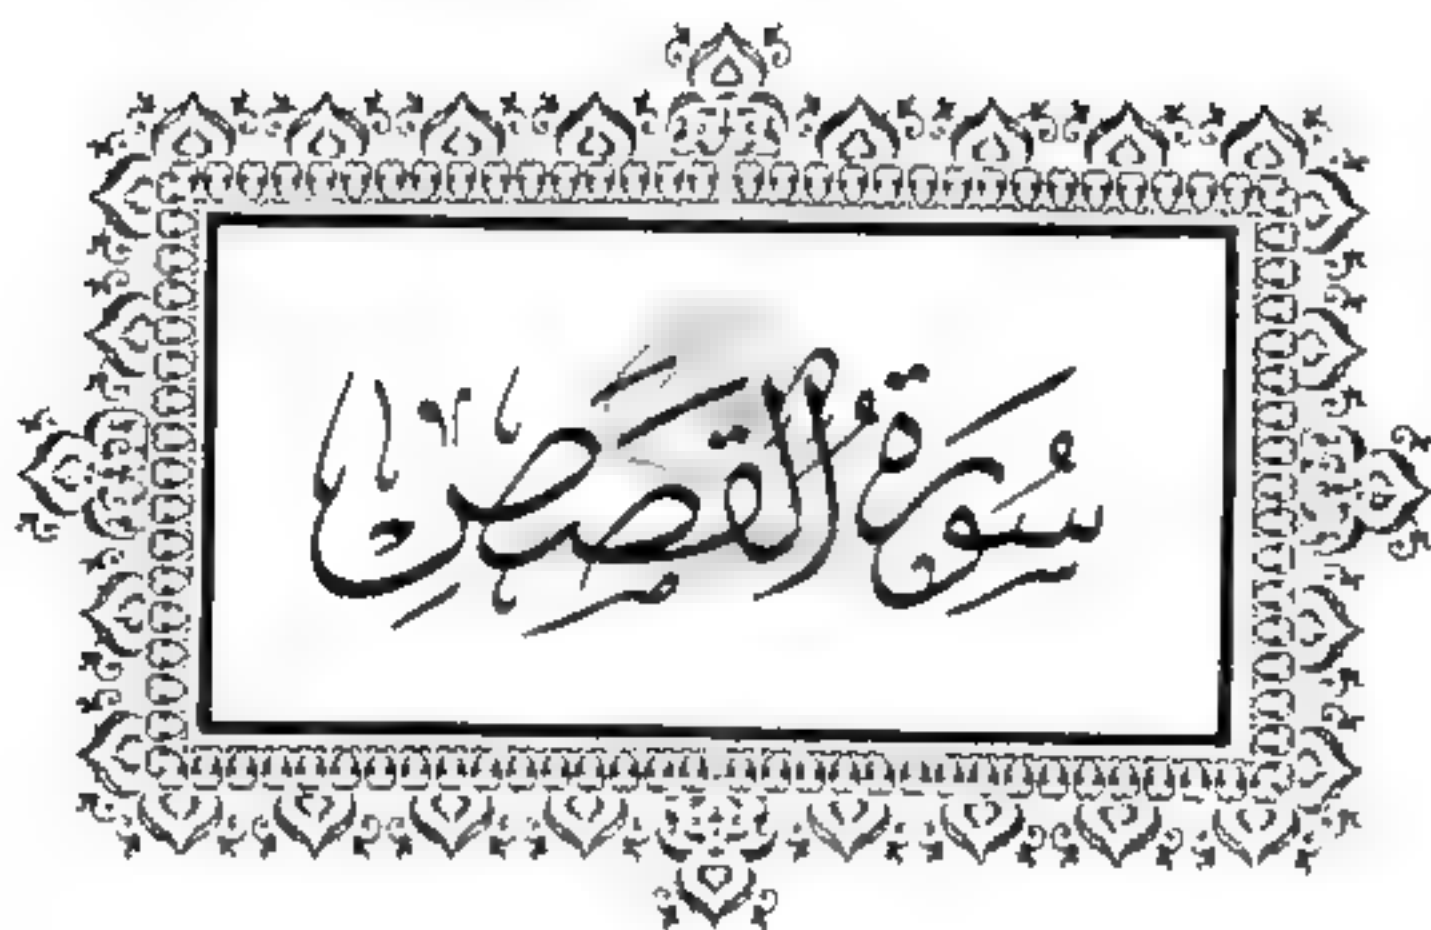 سُورَةُ القَصَصِ